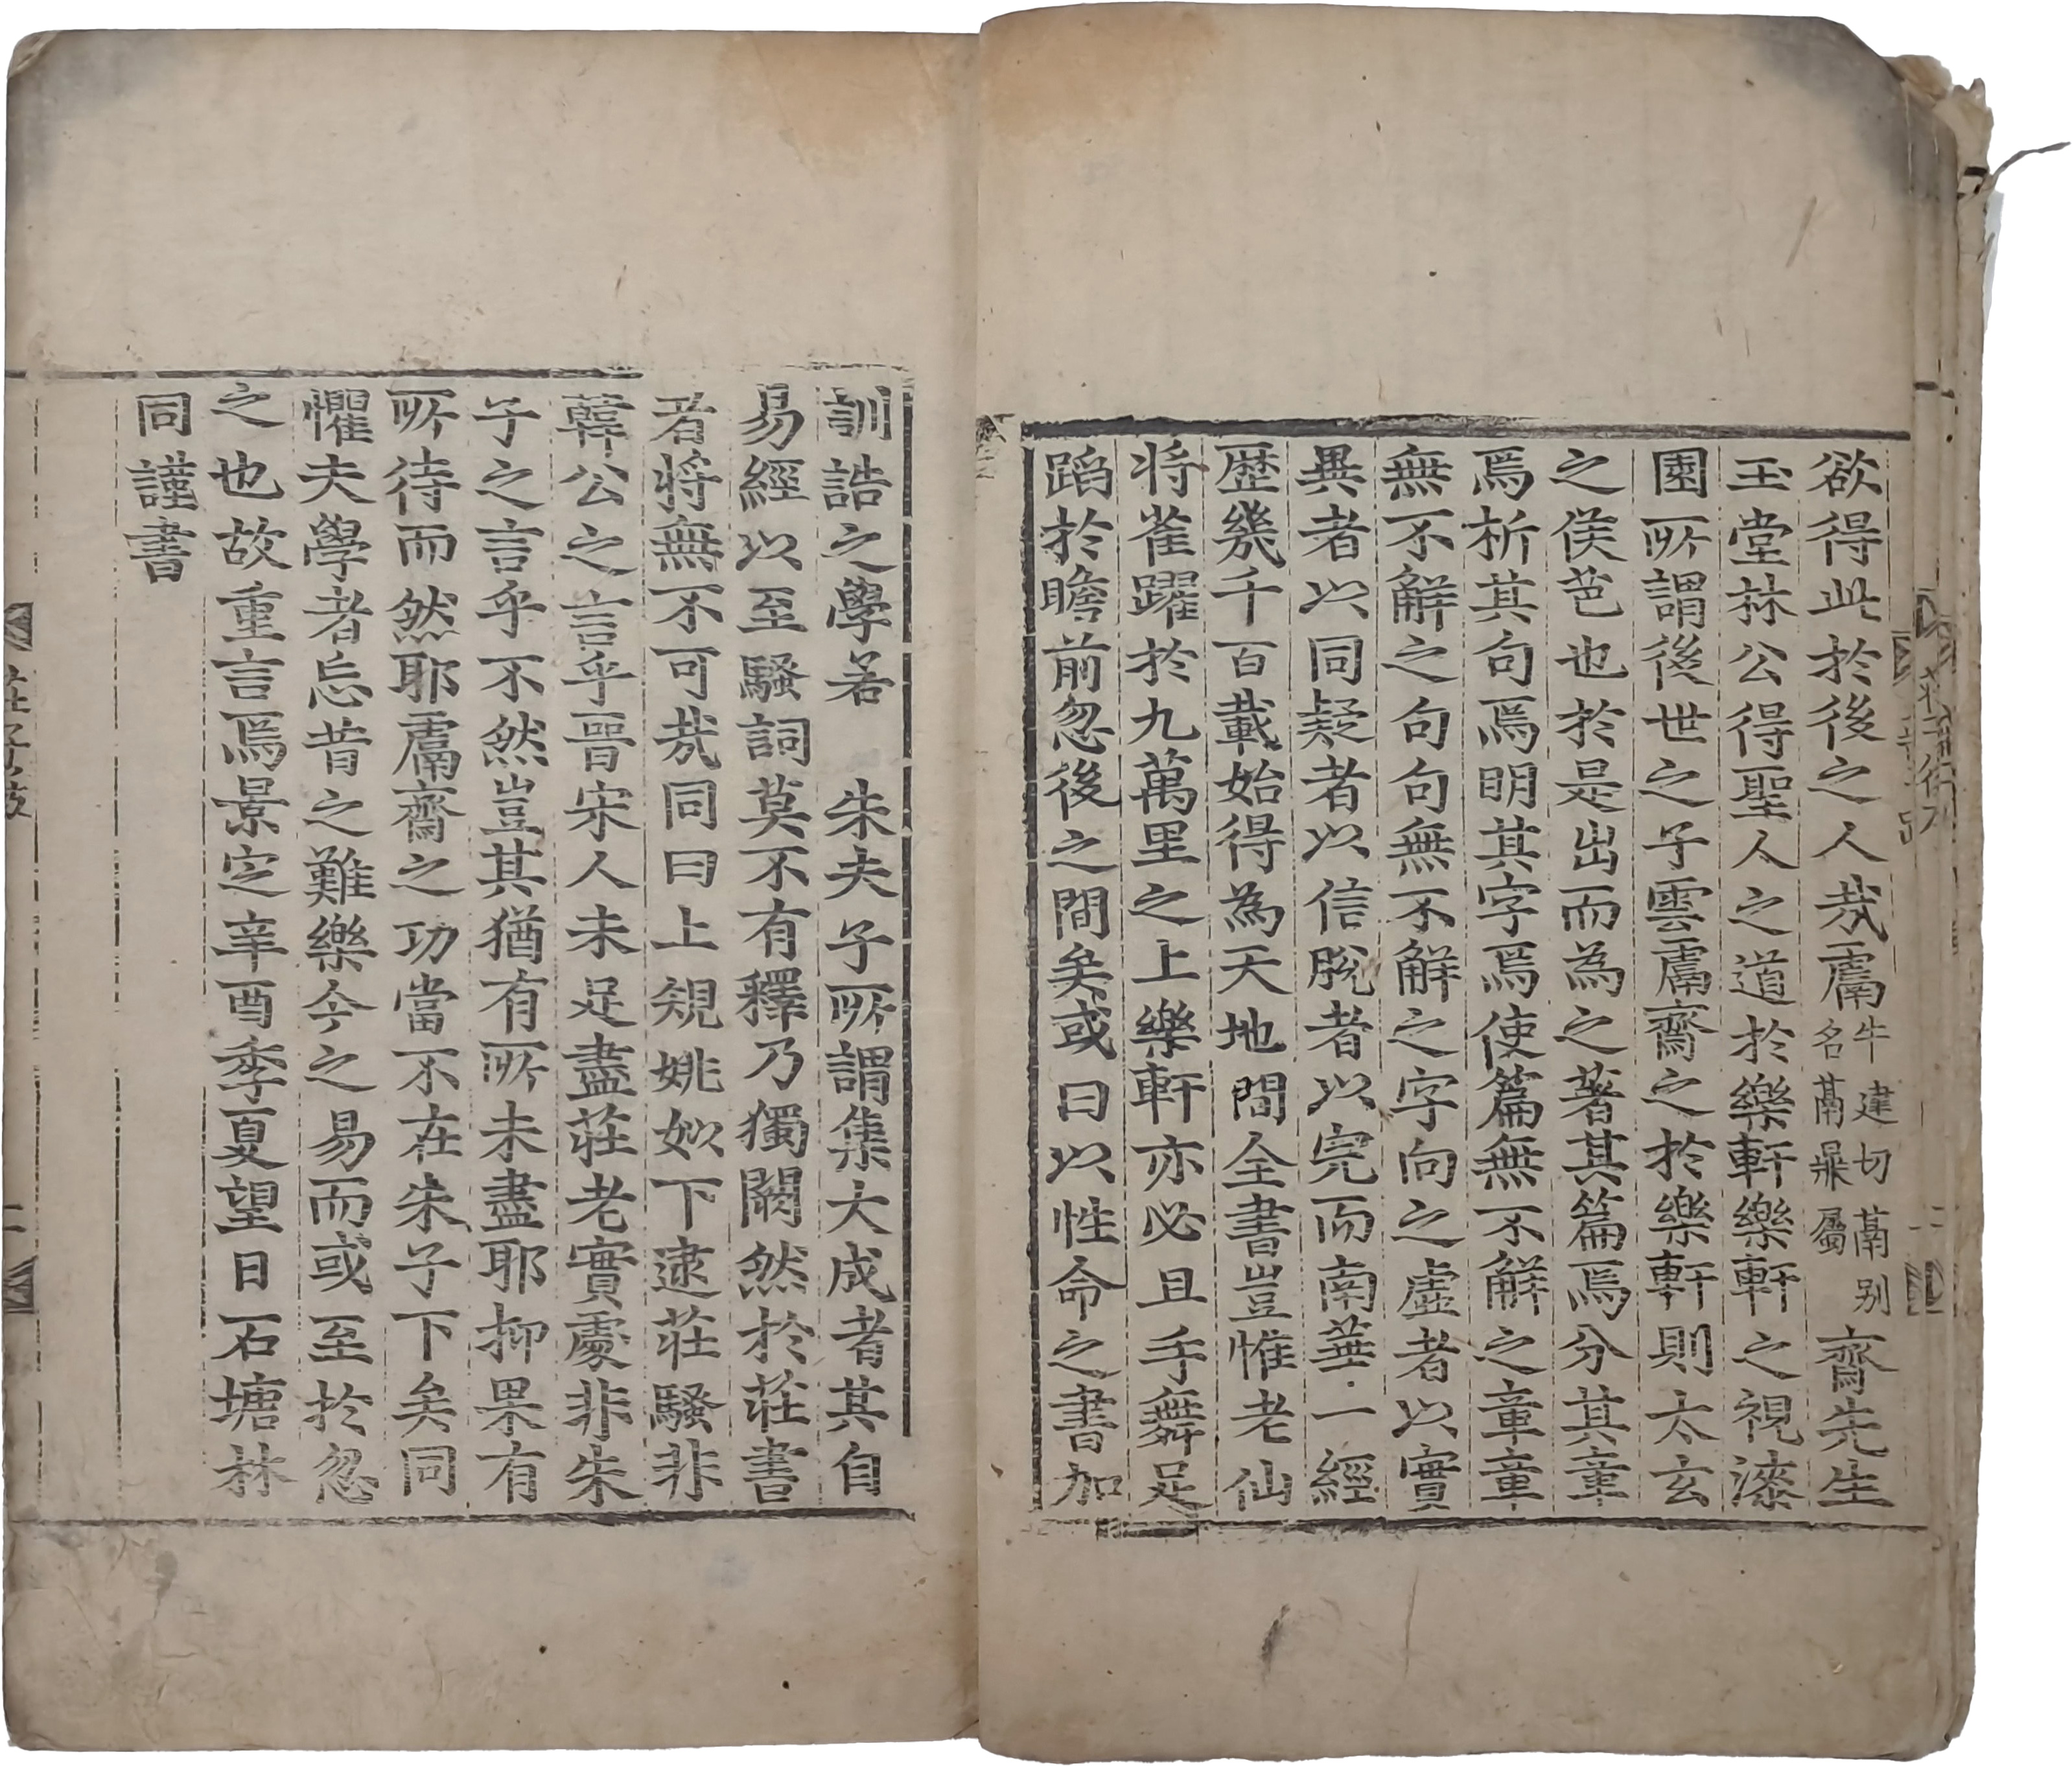 欲得此於後之人哉鬳牛建切鬲别名鬲鼎屬齋先生
玉堂林公得聖人之道於樂軒樂軒之視漆
園所謂後世之子雲鬳齋之於樂軒則太玄
之侯芭也於是出而為之著其篇焉分其章
焉析其句焉明其字焉使篇無不解之章章
無不解之句句無不解之字向之虛者以實
異者以同疑者以信脫者以完而南華一經
歷幾千百載始得為天地間全書豈惟老仙
将雀躍於九萬里之上樂軒亦必且手舞足
蹈於瞻前忽後之間矣或曰以性命之書加
訓誥之學若 朱夫子所謂集大成者其自
易經以至騷詞莫不有釋乃獨闕然於莊書
者將無不可哉同曰上規姚姒下逮莊騷非
韓公之言乎晉宋人未足盡莊老實處非朱
子之言乎不然豈其猶有所未盡耶抑果有
所待而然耶鬳齋之功當不在朱子下矣同
懼夫學者忘昔之難樂今之易而或至於忽
之也故重言焉景定辛酉季夏望日石塘林
同謹書